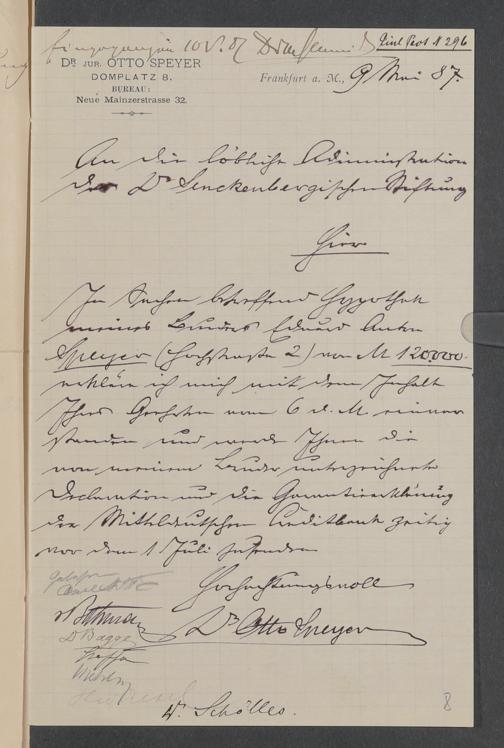 Eingegangen 10 V. 87
Einl Prot N 296
DR JUR. OTTO SPEYER
DOMPLATZ 8.
BUREAU:
Neue Mainzerstrasse 32.
Frankfurt a. M., 9 Mai 87.
An die löbliche Administration
der Dr Senckenbergischen Stiftung
Hier
In Sachen betreffend Hypothek
meines Bruders Eduard Anton
Speyer (Hochstraße 2) von M 120000.
erkläre ich mich mit dem Inhalt
Ihres Geehrten vom 6 d. M. einver
standen und werde Ihnen die
von meinem Bruder unterzeichnete
Declaration und die Garantieerklärung
der Mitteldeutschen Creditbank zeitig
vor dem 1 Juli zusenden
Hochachtungsvoll
Dr Otto Speyer
gelesen
Dr Bagge
Dr. Schölles.
8